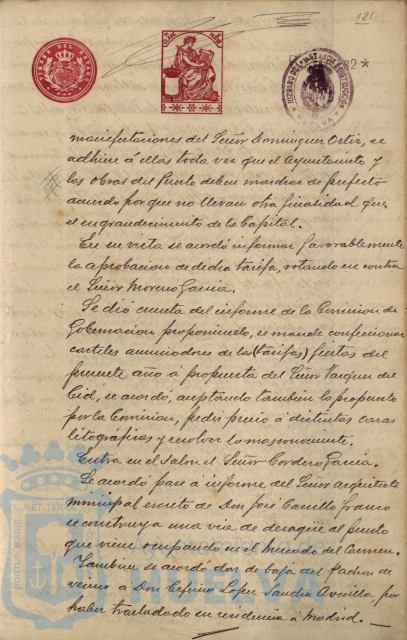 121
TIMBRE DEL ESTADO
manifestaciones del Señor Dominguez Ortiz, se
adhiere á ellas toda vez que el Ayuntamiento y
las obras del Puerto deben marchar de perfecto
acuerdo por que no llevan otra finalidad que
el engrandecimiento de la Capital.
En su vista se acordó informar favorablemente
la aprobacion de dicha tarifa, votando en contra
el Señor Moreno Garcia.
Se dió cuenta del informe de la Comision de
Gobernacion proponiendo, se mande confeccionar
carteles anunciadores de las (tarifas) fiestas del
presente año á propuesta del Señor Vazquez del
Cid, se acordó, aceptando tambien lo propuesto
por la Comision, pedir precio á distintas casas
litograficas y resolver lo mas conveniente.
Entra en el salon el Señor Cordero Garcia.
Se acordó pase á informe del Señor Arquitecto
municipal escrito de Don José Carrillo Franco
se construya una via de desagüe al puesto
que viene ocupando en el Mercado del Carmen.
Tambien se acordó dar de baja del Padron de
vecinos á Don Ceferino Lopez Sanchez por
haber trasladado su residencia á Madrid.
PORTUS MARIS ET TERRAE
HUELVA